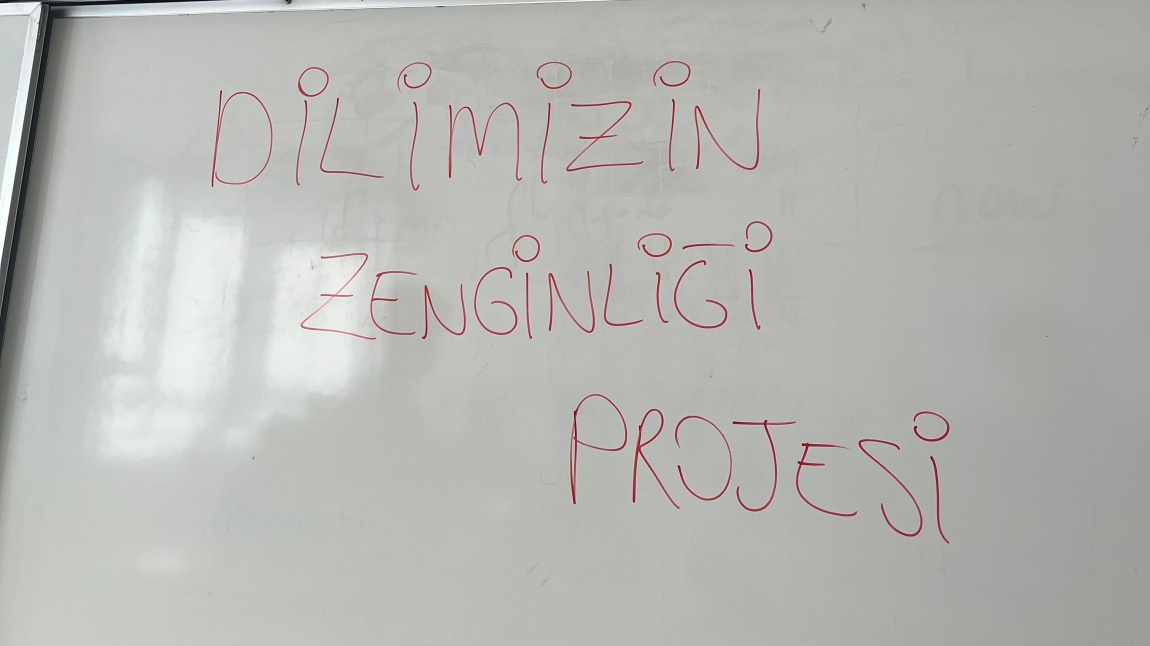 DİLİMİZİN
ZENGİNLİĞİ
PROJESİ